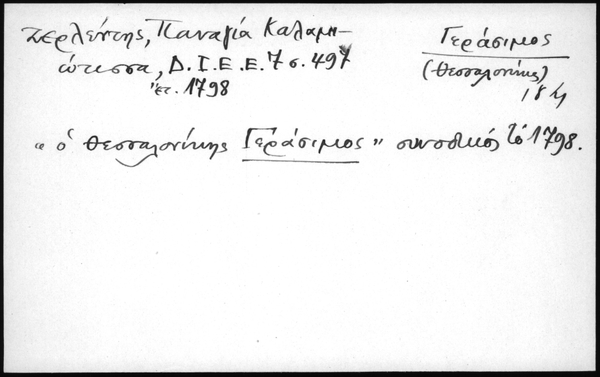 Ζερλέντης, Παναγία Καλαμι-
ώτισσα, Δ.Ι.Ε.Ε. 7 σ. 497
ἔτ. 1798
Γεράσιμος
(Θεσσαλονίκης)
"ὁ Θεσσαλονίκης Γεράσιμος" συνοδικός τό 1798.